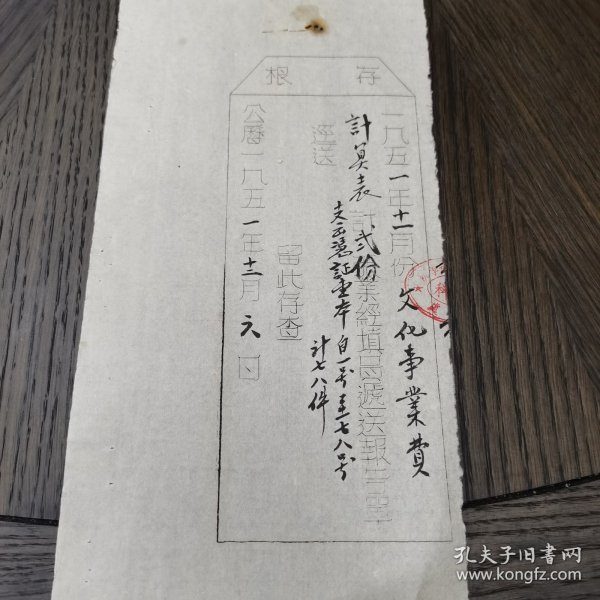 存根
一九五一年十一月份 文化事業費
計算表計弍份業經填具遞送報告單
逕送
支出憑証壹本 自一号至七八号
計七八件
留此存查
公曆一九五一年十二月六日
孔夫子旧书网
www.kongfz.com